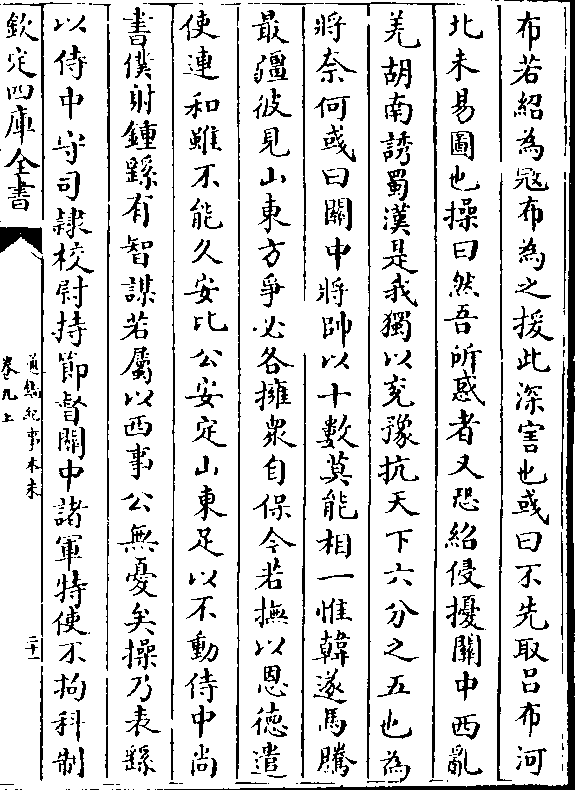 布若紹為冦布為之援此深害也或曰不先取吕布河
北未易圖也操曰然吾所惑者又恐紹侵擾關中西亂
羌胡南誘蜀漢是我獨以兖豫抗天下六分之五也為
將奈何彧曰關中將帥以十數莫能相一惟韓遂馬騰
最彊彼見山東方爭必各擁衆自保今若撫以恩德遣
使連和雖不能久安比公安定山東足以不動侍中尚
書僕射鍾繇有智謀若屬以西事公無憂矣操乃表繇
以侍中守司隷校尉持節督關中諸軍特使不拘科制
欽定四庫全書
通鑑紀事本末
卷九上
二十一